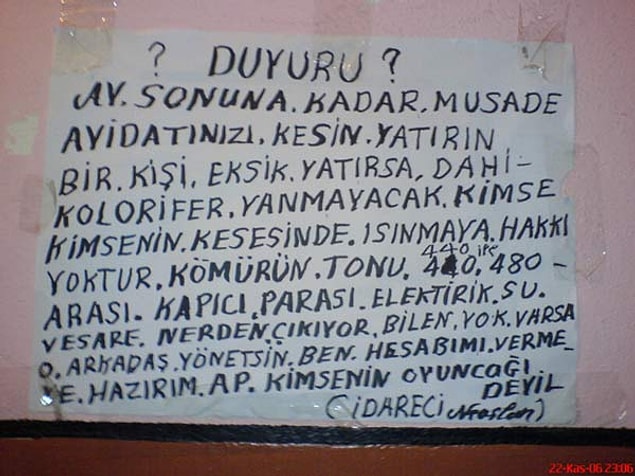 ? DUYURU ?
AY. SONUNA. KADAR. MUSADE
AYİDATINIZI. KESİN. YATIRIN
BİR. KİŞİ. EKSİK. YATIRSA, DAHİ-
KOLORİFER. YANMAYACAK. KİMSE
KİMSENİN. KESESİNDE. ISINMAYA. HAKKI
YOKTUR. KÖMÜRÜN. TONU. 440. 480 -
440 ile
ARASI. KAPICI. PARASI. ELEKTİRİK. SU.
VESARE. NERDEN ÇIKIYOR. BİLEN. YOK. VARSA
O. ARKADAŞ. YÖNETSİN. BEN. HESABIMI. VERME_
YE. HAZIRIM. AP. KİMSENİN OYUNCAĞI
DEYİL
(İDARECİ
22-Kas-06 23:06